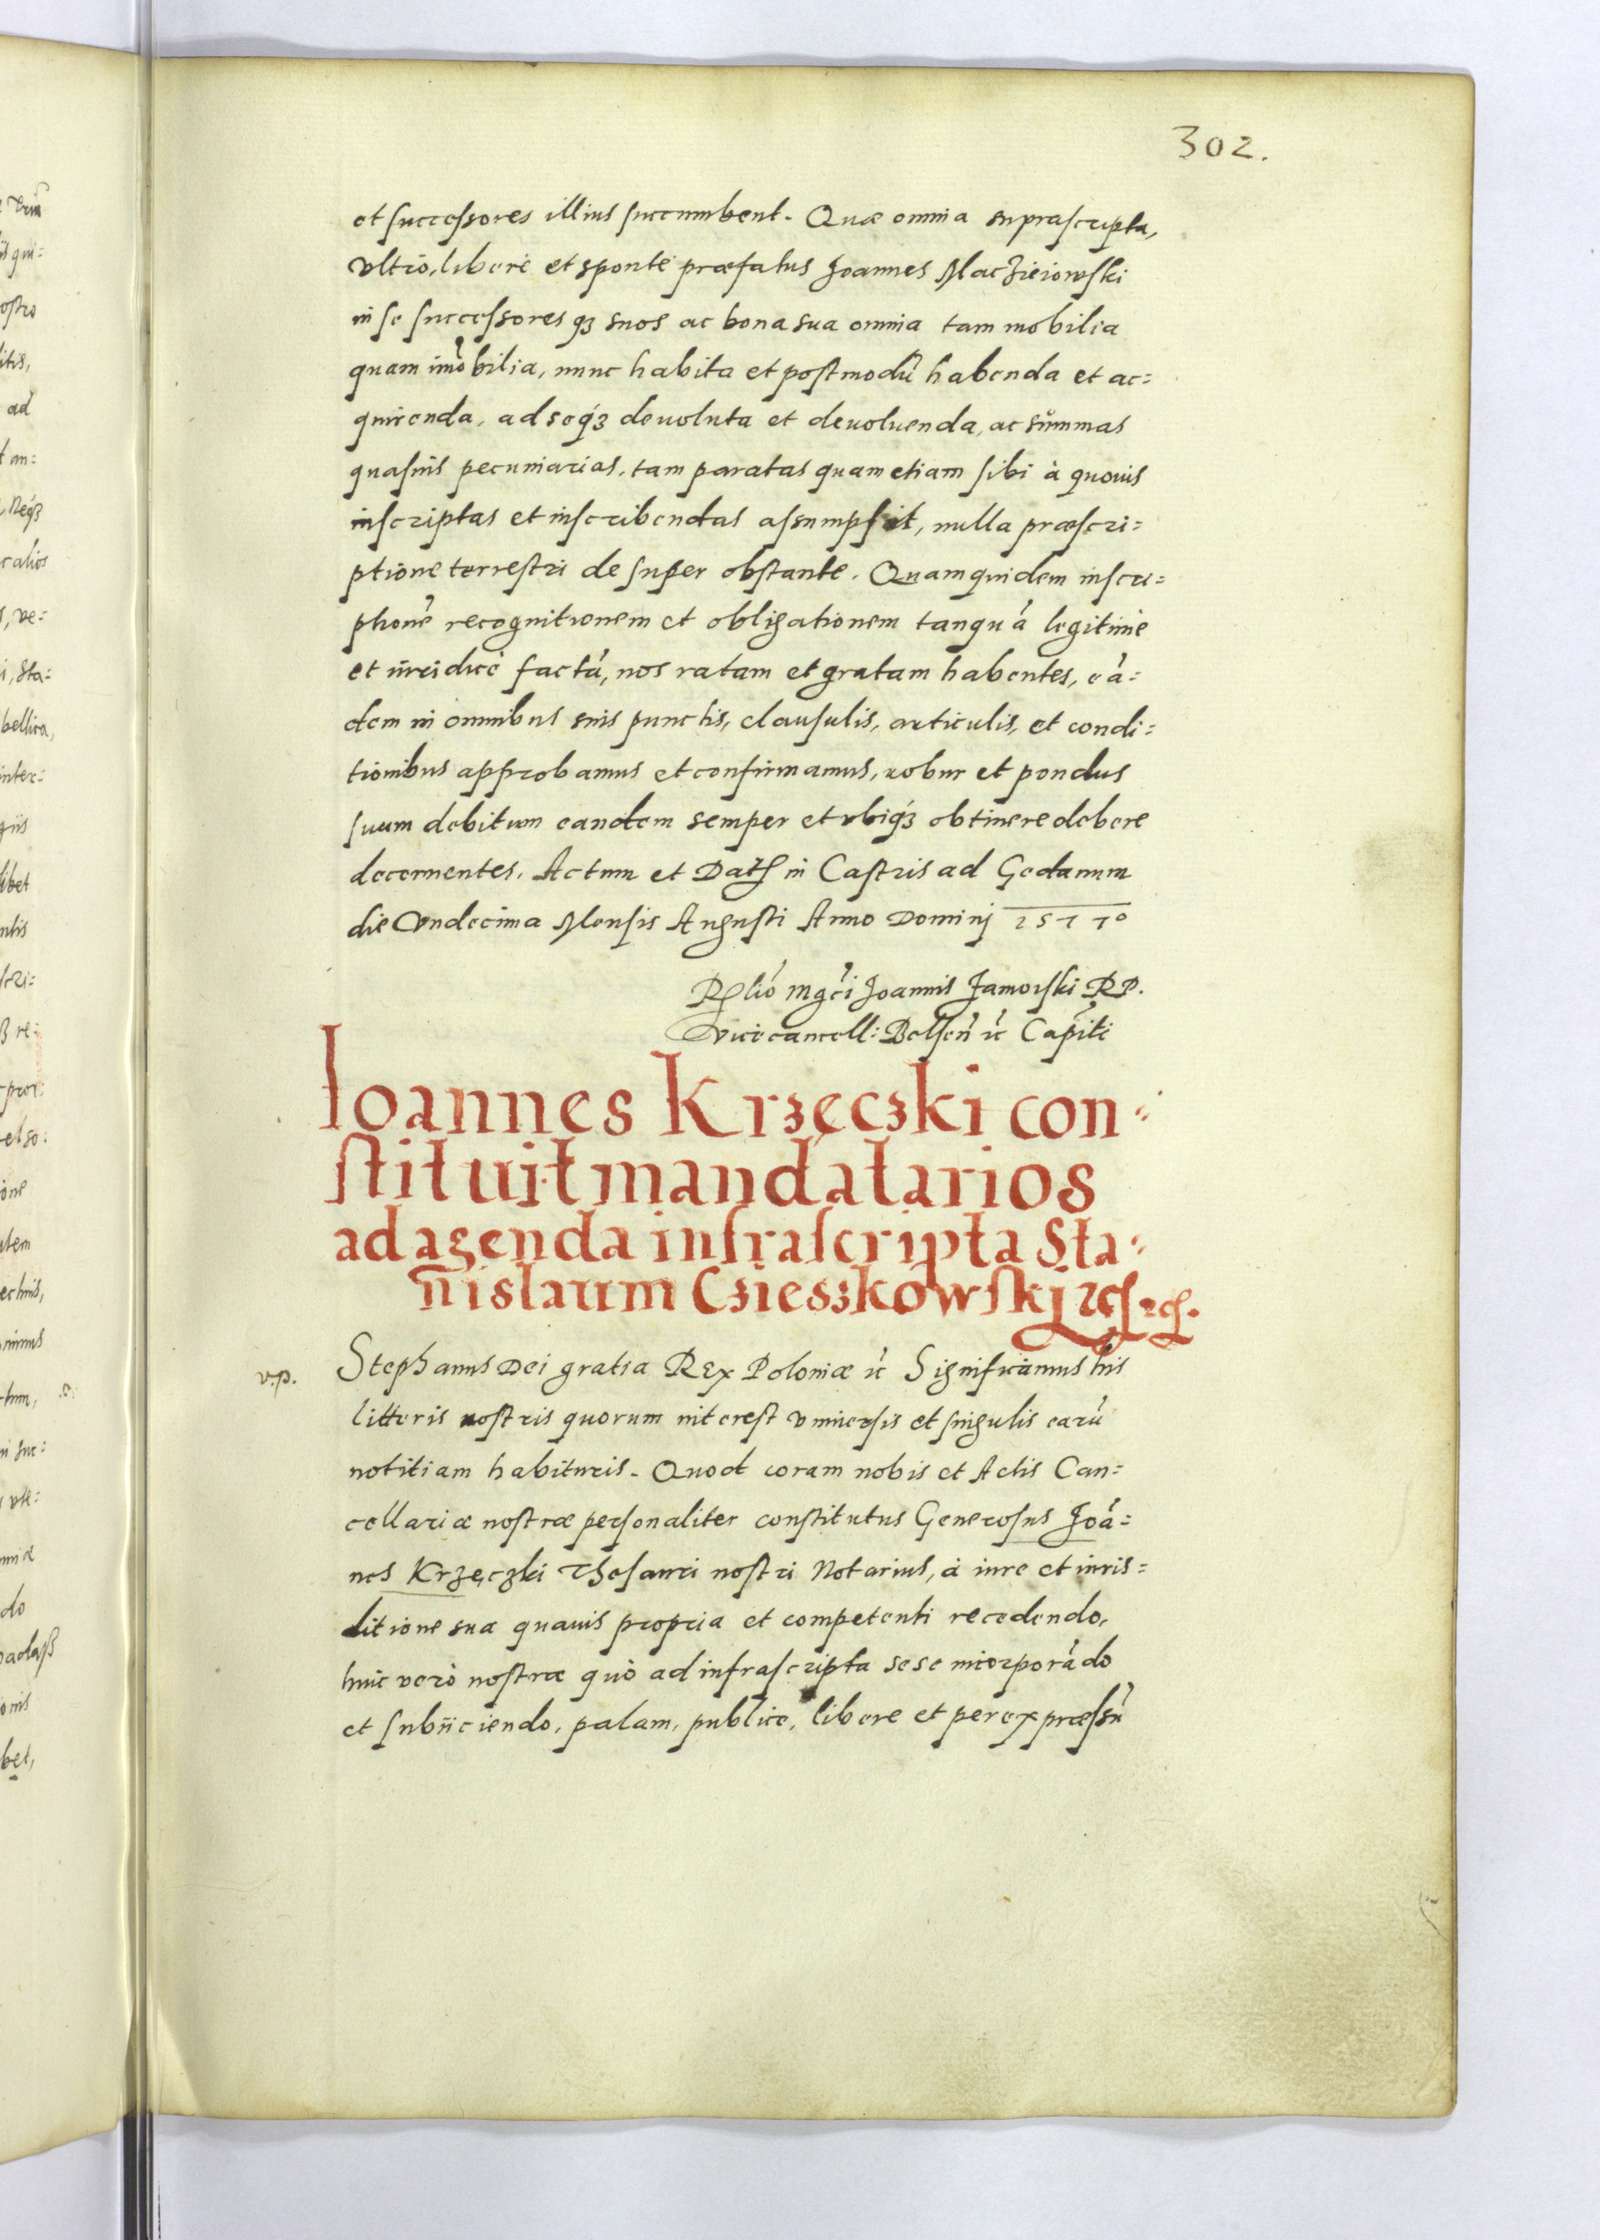 302.
et successores illius succumbent. Quæ omnia supra scripta,
vltrò, liberè et spontè præfatus Joannes Maczieiowski
in se successoresqз suos ac bona sua omnia tam mobilia
quam im̃obilia, nunc habita et postmodũ habenda et ac=
quirenda, ad seqз deuoluta et deuoluenda, ac summas
quasuis pecuniarias, tam paratas quam etiam sibi à quouis
inscriptas et inscribendas assumpsit, nulla præscri=
ptione terrestri de super obstante. Quamquidem inscri=
ptionẽ recognitionem et obligationem tanquã legitimè
et iuridicè factã, nos ratam et gratam habentes, eã=
dem in omnibus suis punctis, clausulis, articulis, et condi=
tionibus approbamus et confirmamus, robur et pondus
suum debitum eandem semper et vbiqз obtinere debere
decernentes. Actum et Dat in Castris ad Gedanum
die Vndecima Mensis Augusti Anno Dominj 1577º
Rlio Mgci Joannis Zamoyski RP.
Vicecancell: Belsen̄ ꝛc Capiti
Ioannes Krzeczki con=
stituit mandatarios
ad agenda infrascripta Sta=
nislaum Czieszkowskj ꝛc ꝛc.
v.p.
Stephanus Dei gratia REx Poloniæ ꝛc Significamus his
litteris nostris quorum interest vniuersis et singulis earũ
notitiam habituris. Quod coram nobis et Actis Can=
cellariæ nostræ personaliter constitutus Generosus Joã=
nes Krzęczki Thesauri nostri Notarius, à iure et iuris=
ditione sua quauis propria et competenti recedendo,
huic verò nostræ quò ad infrascripta sese incorporãdo
et subijciendo, palam, publice, libere et per expræssũ